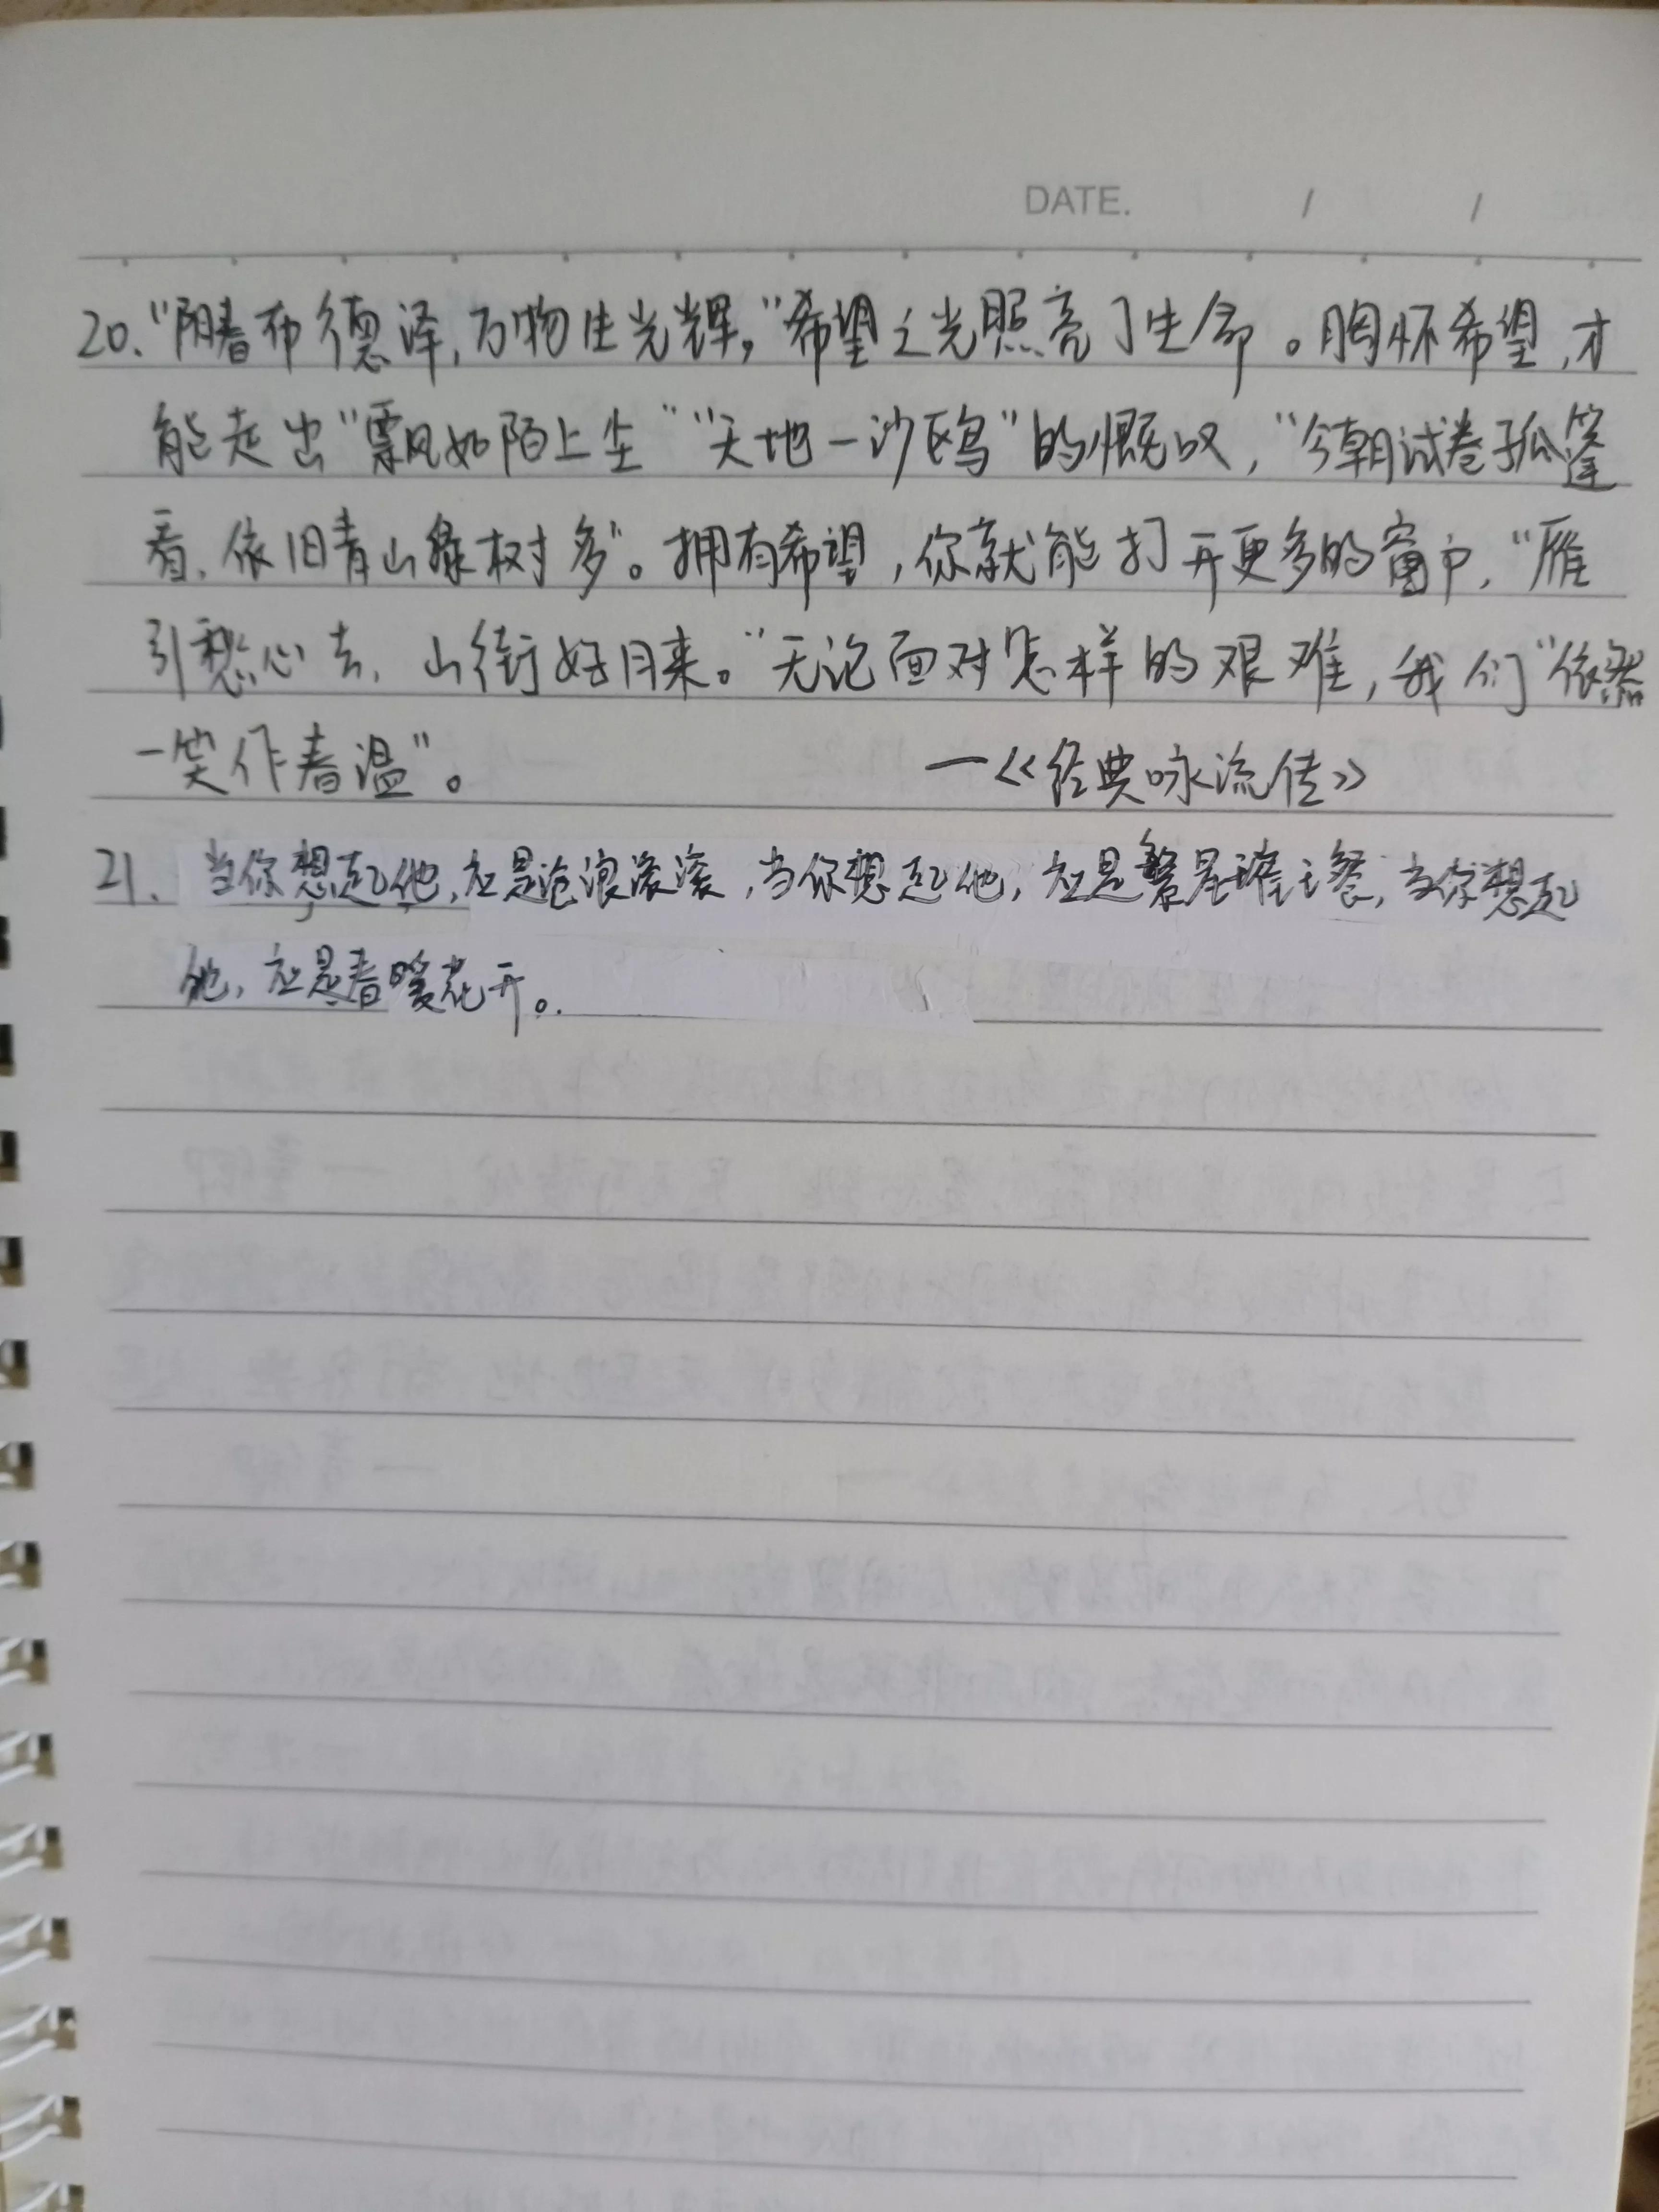 DATE. / /
20.“阳春布德泽,万物生光辉,”希望之光照亮了生命。胸怀希望,才
能走出“飘如陌上尘”“天地一沙鸥”的慨叹,“今朝试卷孤篷
看,依旧青山绿树多”。拥有希望,你就能打开更多的窗户,“雁
引愁心去,山衔好月来。”无论面对怎样的艰难,我们“依然
一笑作春温”。 —《经典咏流传》
21. 当你想起他,应是沧浪滚滚,当你想起他,应是繁星璀璨,当你想起
他,应是春暖花开。